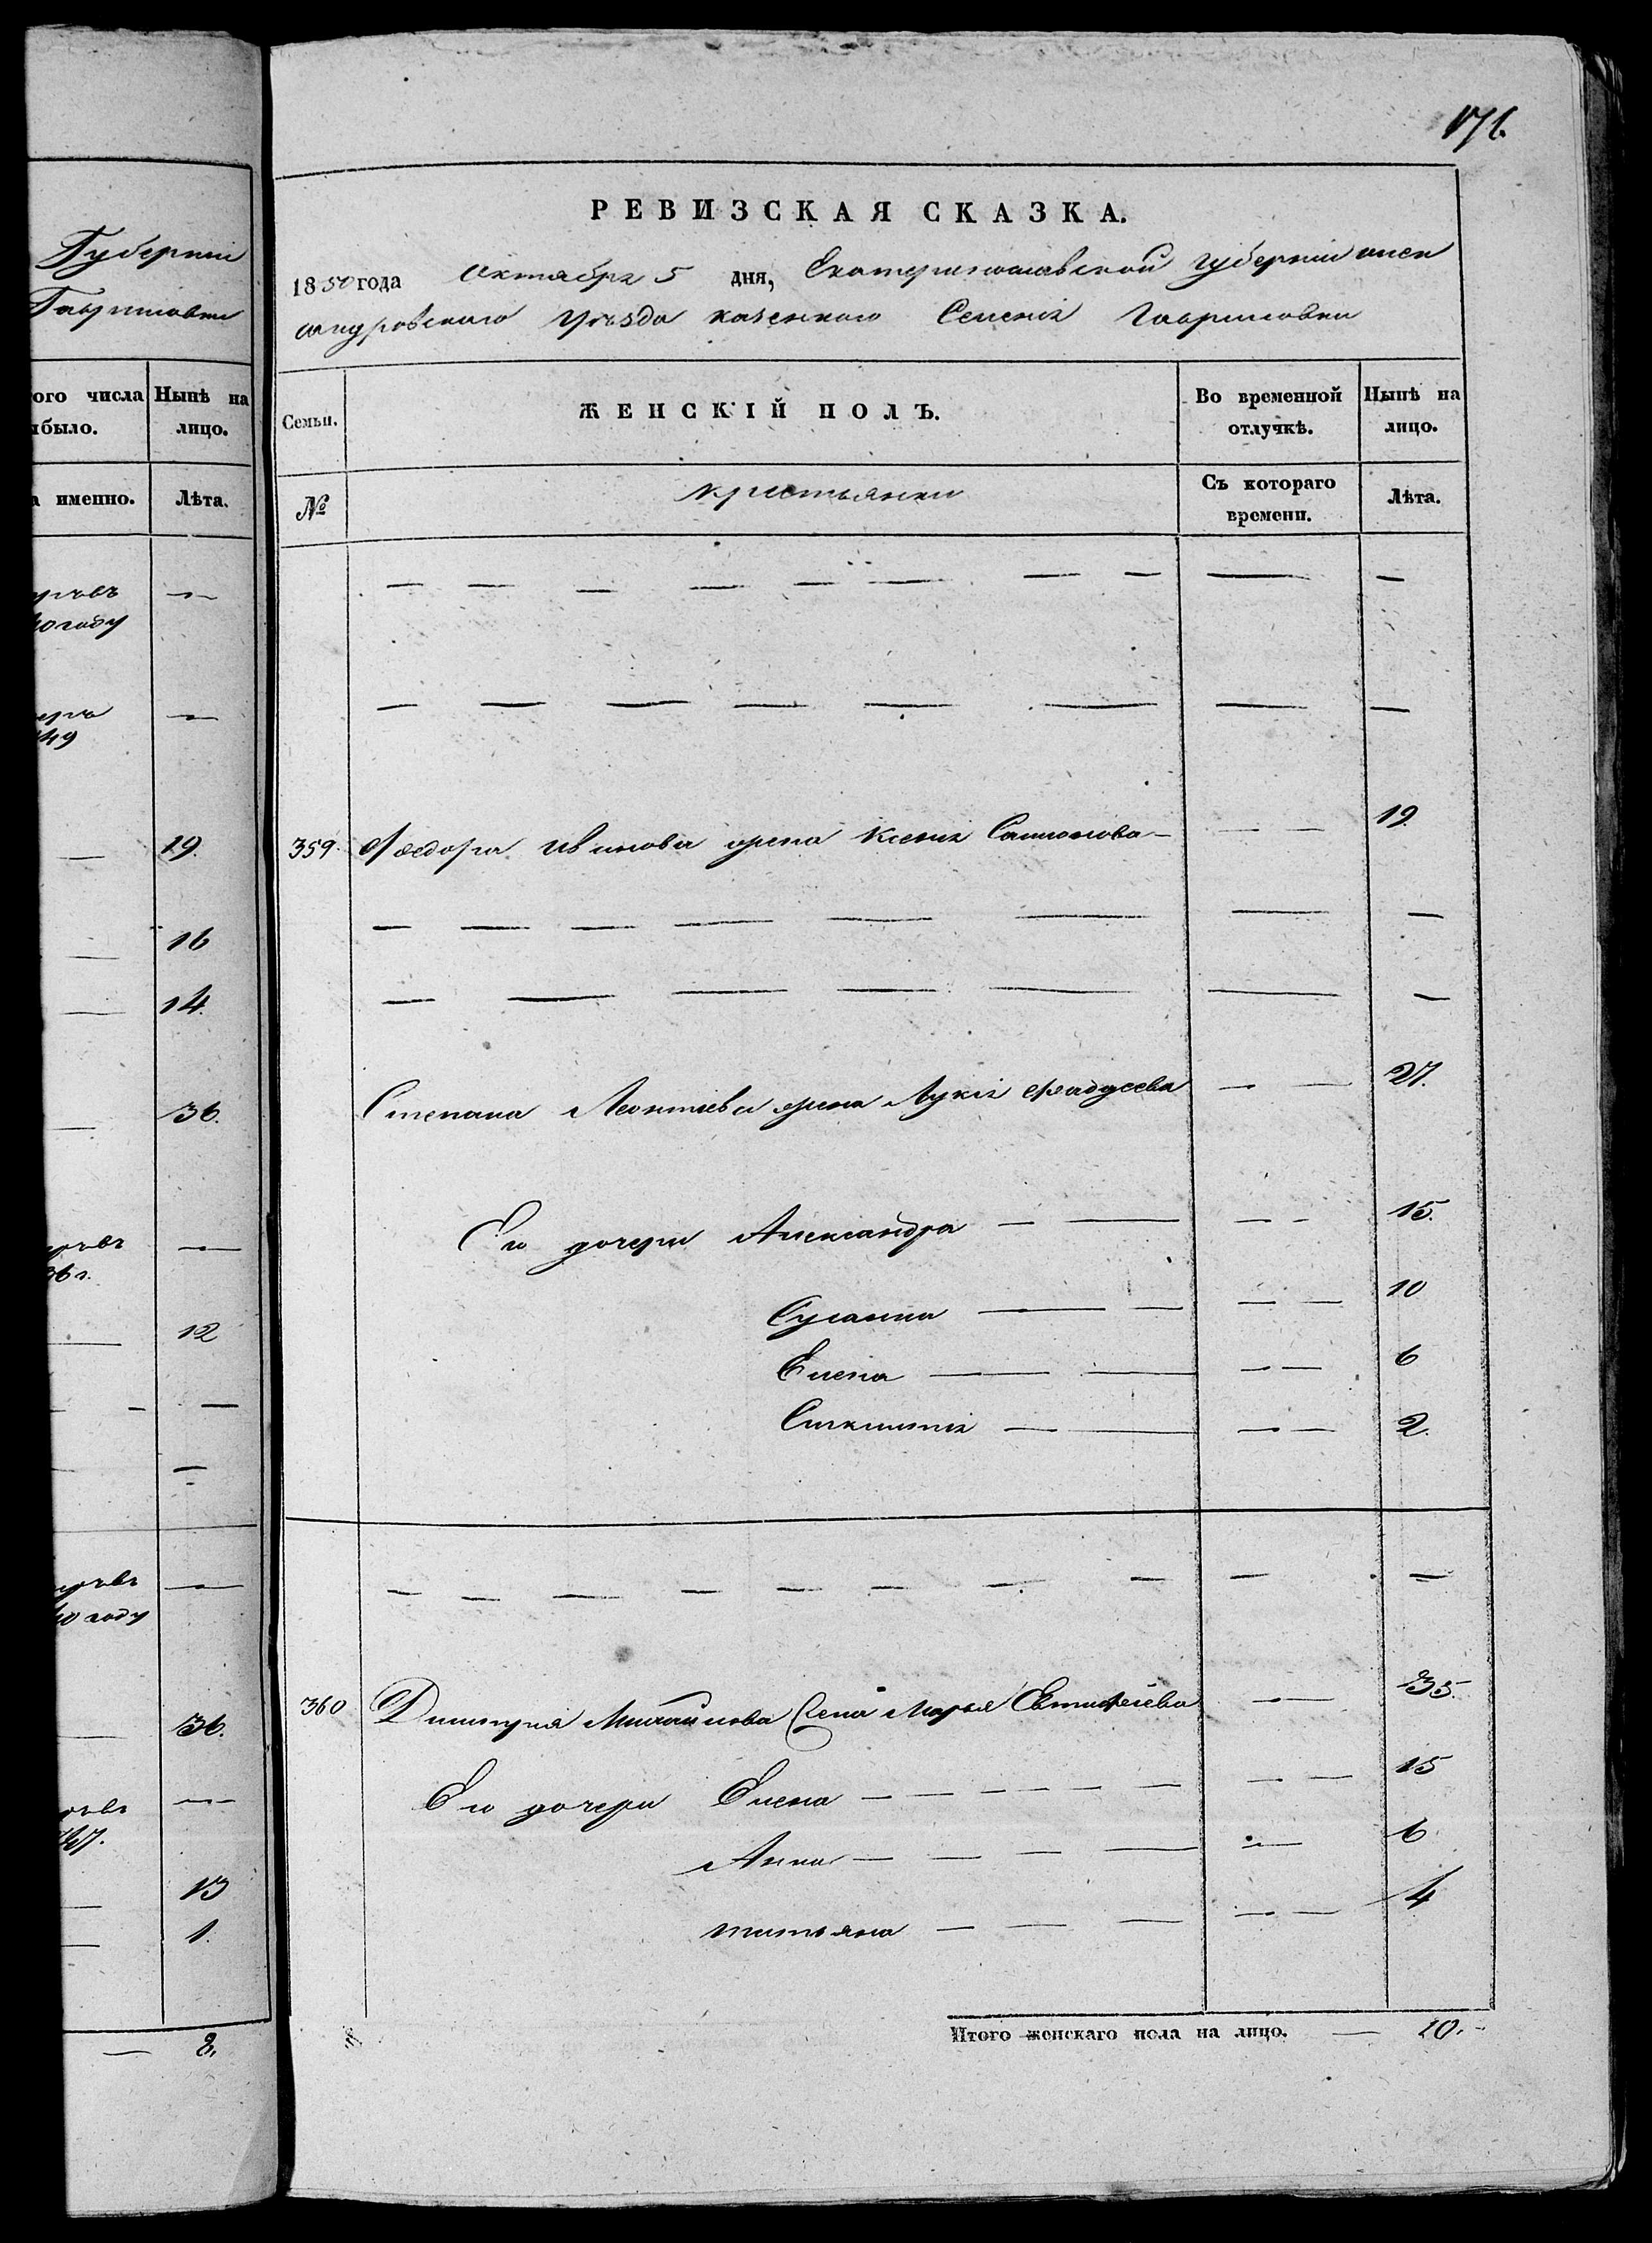 Губерніи
Гавриловки
ого числа Нынѣ на
было. лицо.
а именно. Лѣта.
году
49
19.
16
14.
36.
36 г.
12
40 году
36.
47.
13
1.
8.
171.
РЕВИЗСКАЯ СКАЗКА.
1850 года Октября 5 дня, Екатеринославской губерніи Алек
сандровскаго уѣзда казеннаго Селенія Гавриловки
Семьи. ЖЕНСКІЙ ПОЛЪ. Во временной отлучкѣ. Нынѣ на лицо.
№ Крестьянки Съ котораго времени. Лѣта.
— — — — — — — — — —
— — — — — — — —
359. Ѳеодора Иванова жена Ксенія Самойлова — — — 19.
— — — — — — — —
— — — — — — —
Степана Леонтьева жена Лукія Фадѣева — — 27.
Его дочери Александра — — — - 15.
Сусанна — — — — 10
Елена — — — — 6
Синклитія — — — — 2.
— — — — — — — — — —
360 Дмитрія Михайлова жена Марья Евтифѣева — — 35.
Его дочери Елена — — — — — — — 15
Анна — — — — — 6
Татьяна — — — — — 4
Итого женскаго пола на лицо. — 10. -